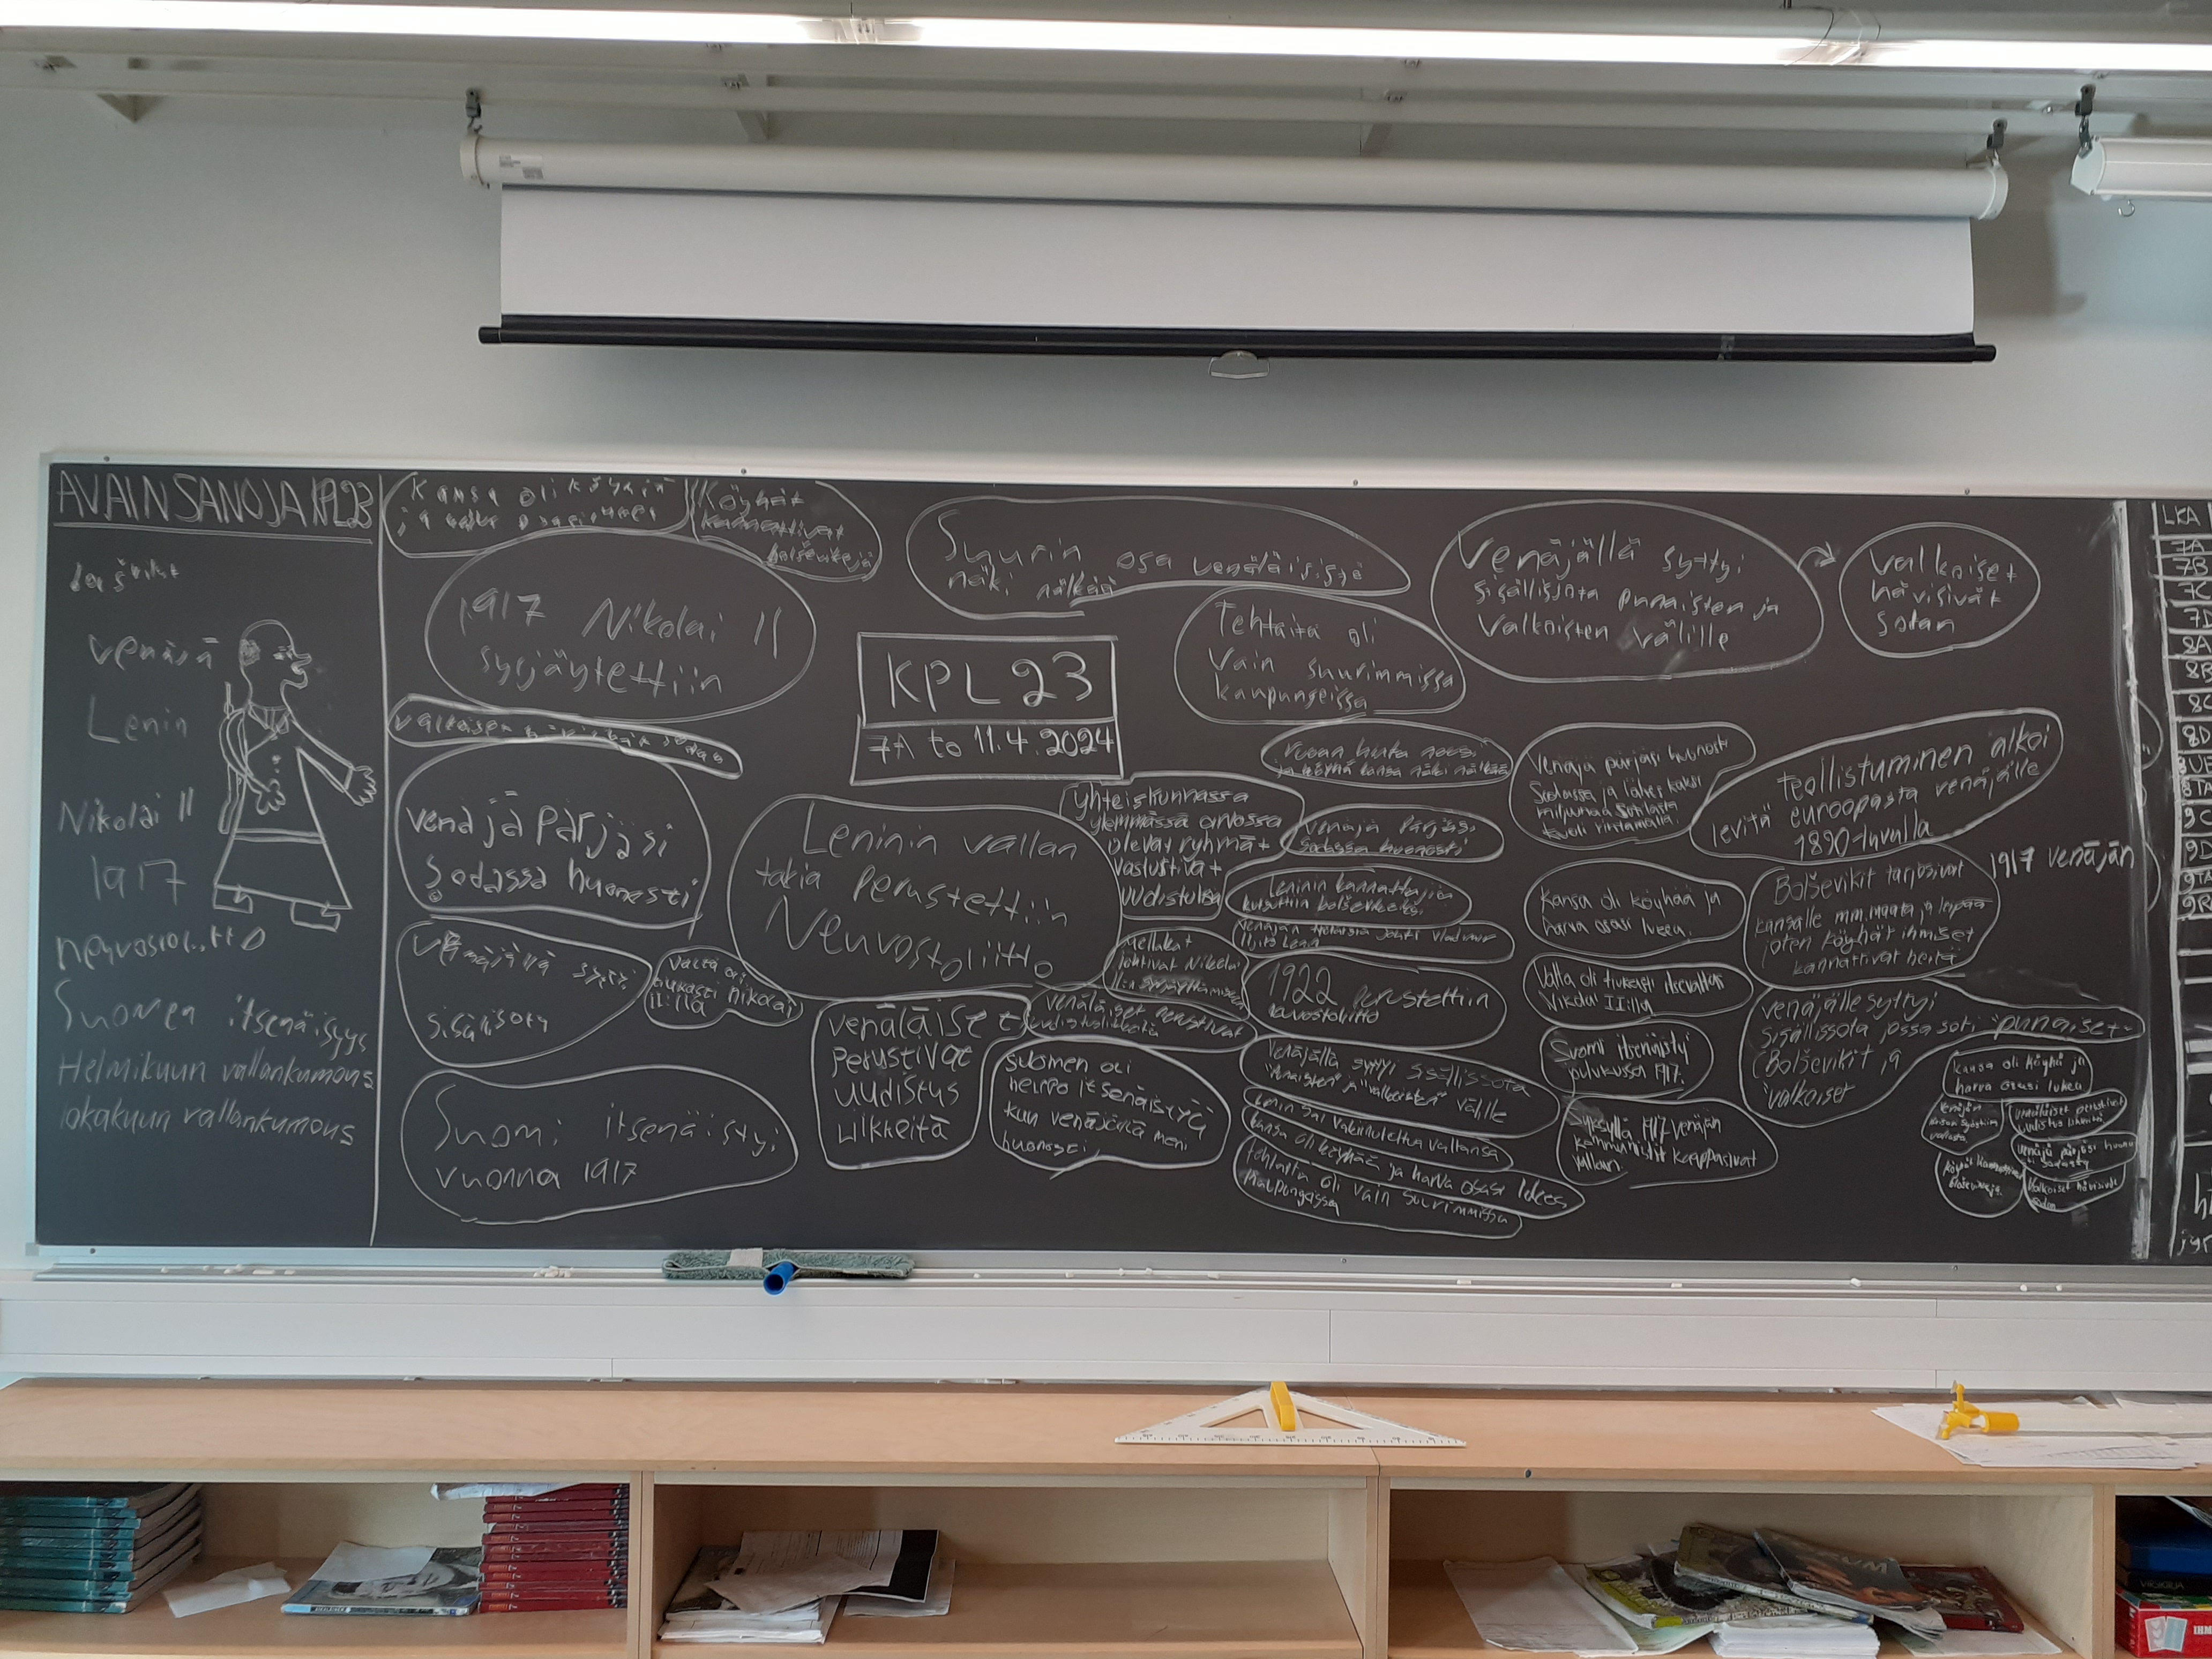 AVAINSANOJA KPL23
venäjä
Lenin
Nikolai II
1917
neuvostoliitto
Suomen itsenäisyys
Helmikuun vallankumous
lokakuun vallankumous
Kansa oli köyhää
Köyhät
kannattivat
bolševikejä
1917 Nikolai II
syrjäytettiin
venäjä pärjäsi
Sodassa huonosti
sisällisota
Valta oli
tiukasti nikolai
II:llä
Suomi itsenäistyi
vuonna 1917
KPL 23
7A to 11.4.2024
Leninin vallan
takia perustettiin
Neuvostoliitto
venäläiset
perustivat
uudistus
liikkeitä
suomen oli
helppo itsenäistyä
kun venäjällä meni
huonosti
Suurin osa venäläisistä
näki nälkää
Tehtaita oli
vain suurimmissa
kaupungeissa
Venäjällä syttyi
sisällissota punaisten ja
valkoisten välille
valkoiset
hävisivät
sodan
ruoan hinta nousi
ja köyhä kansa näki nälkää
yhteiskunnassa
ylemmässä arvossa
olevat ryhmät
vastustivat
uudistuksia
venäjä pärjäsi
sodassa huonosti
Leninin kannattajia
kutsuttiin bolševikeiksi
Mellakat
johtivat Nikolai
II:n syrjäyttämiseen
venäläiset perustivat
uudistusliikkeitä
1922 perustettiin
neuvostoliitto
Venäjällä syttyi sisällissota
"Punaisten" ja "valkoisten" välille
Lenin sai vakiinnutettua valtansa
kansa oli köyhää ja harva osasi lukea
tehtaita oli vain suurimmissa
kaupungeissa
Venäjä pärjäsi huonosti
Sodassa ja lähes kaksi
miljoonaa sotilasta
kuoli rintamalla.
Kansa oli köyhää ja
harva osasi lukea.
Valta oli tiukasti itsevaltias
Nikolai II:lla
Suomi itsenäistyi
joulukuussa 1917.
Syksyllä 1917 venäjän
kommunistit kaappasivat
vallan.
Teollistuminen alkoi
levitä euroopasta venäjälle
1890-luvulla
1917 venäjän
Bolševikit tarjosivat
kansalle mm. maata ja leipää
joten köyhät ihmiset
kannattivat heitä
venäjälle syttyi
sisällissota jossa soti punaiset
(Bolševikit ja
valkoiset
kansa oli köyhä ja
harva osasi lukea
venäläiset perustivat
venäjä pärjäsi huono
valkoiset hävisivät
sodan
LKA
7A
7B
7C
7D
8A
8B
8C
8D
9C
9D